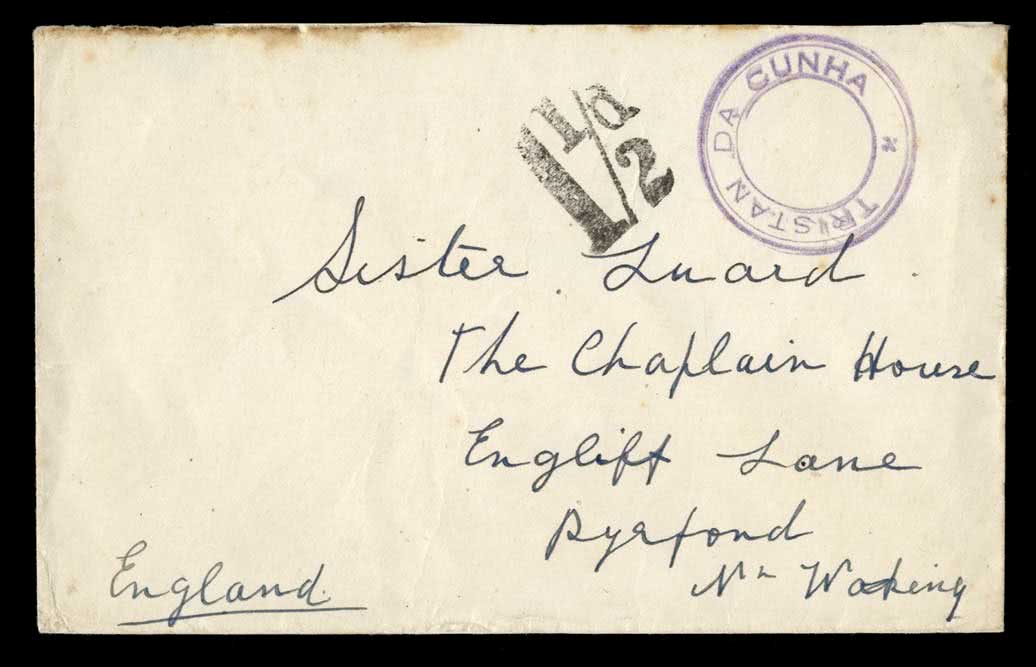 TRISTAN DA CUNHA
1½d
Sister Luard
The Chaplain House
Englifft Lane
Pyrford
Nr Woking
England